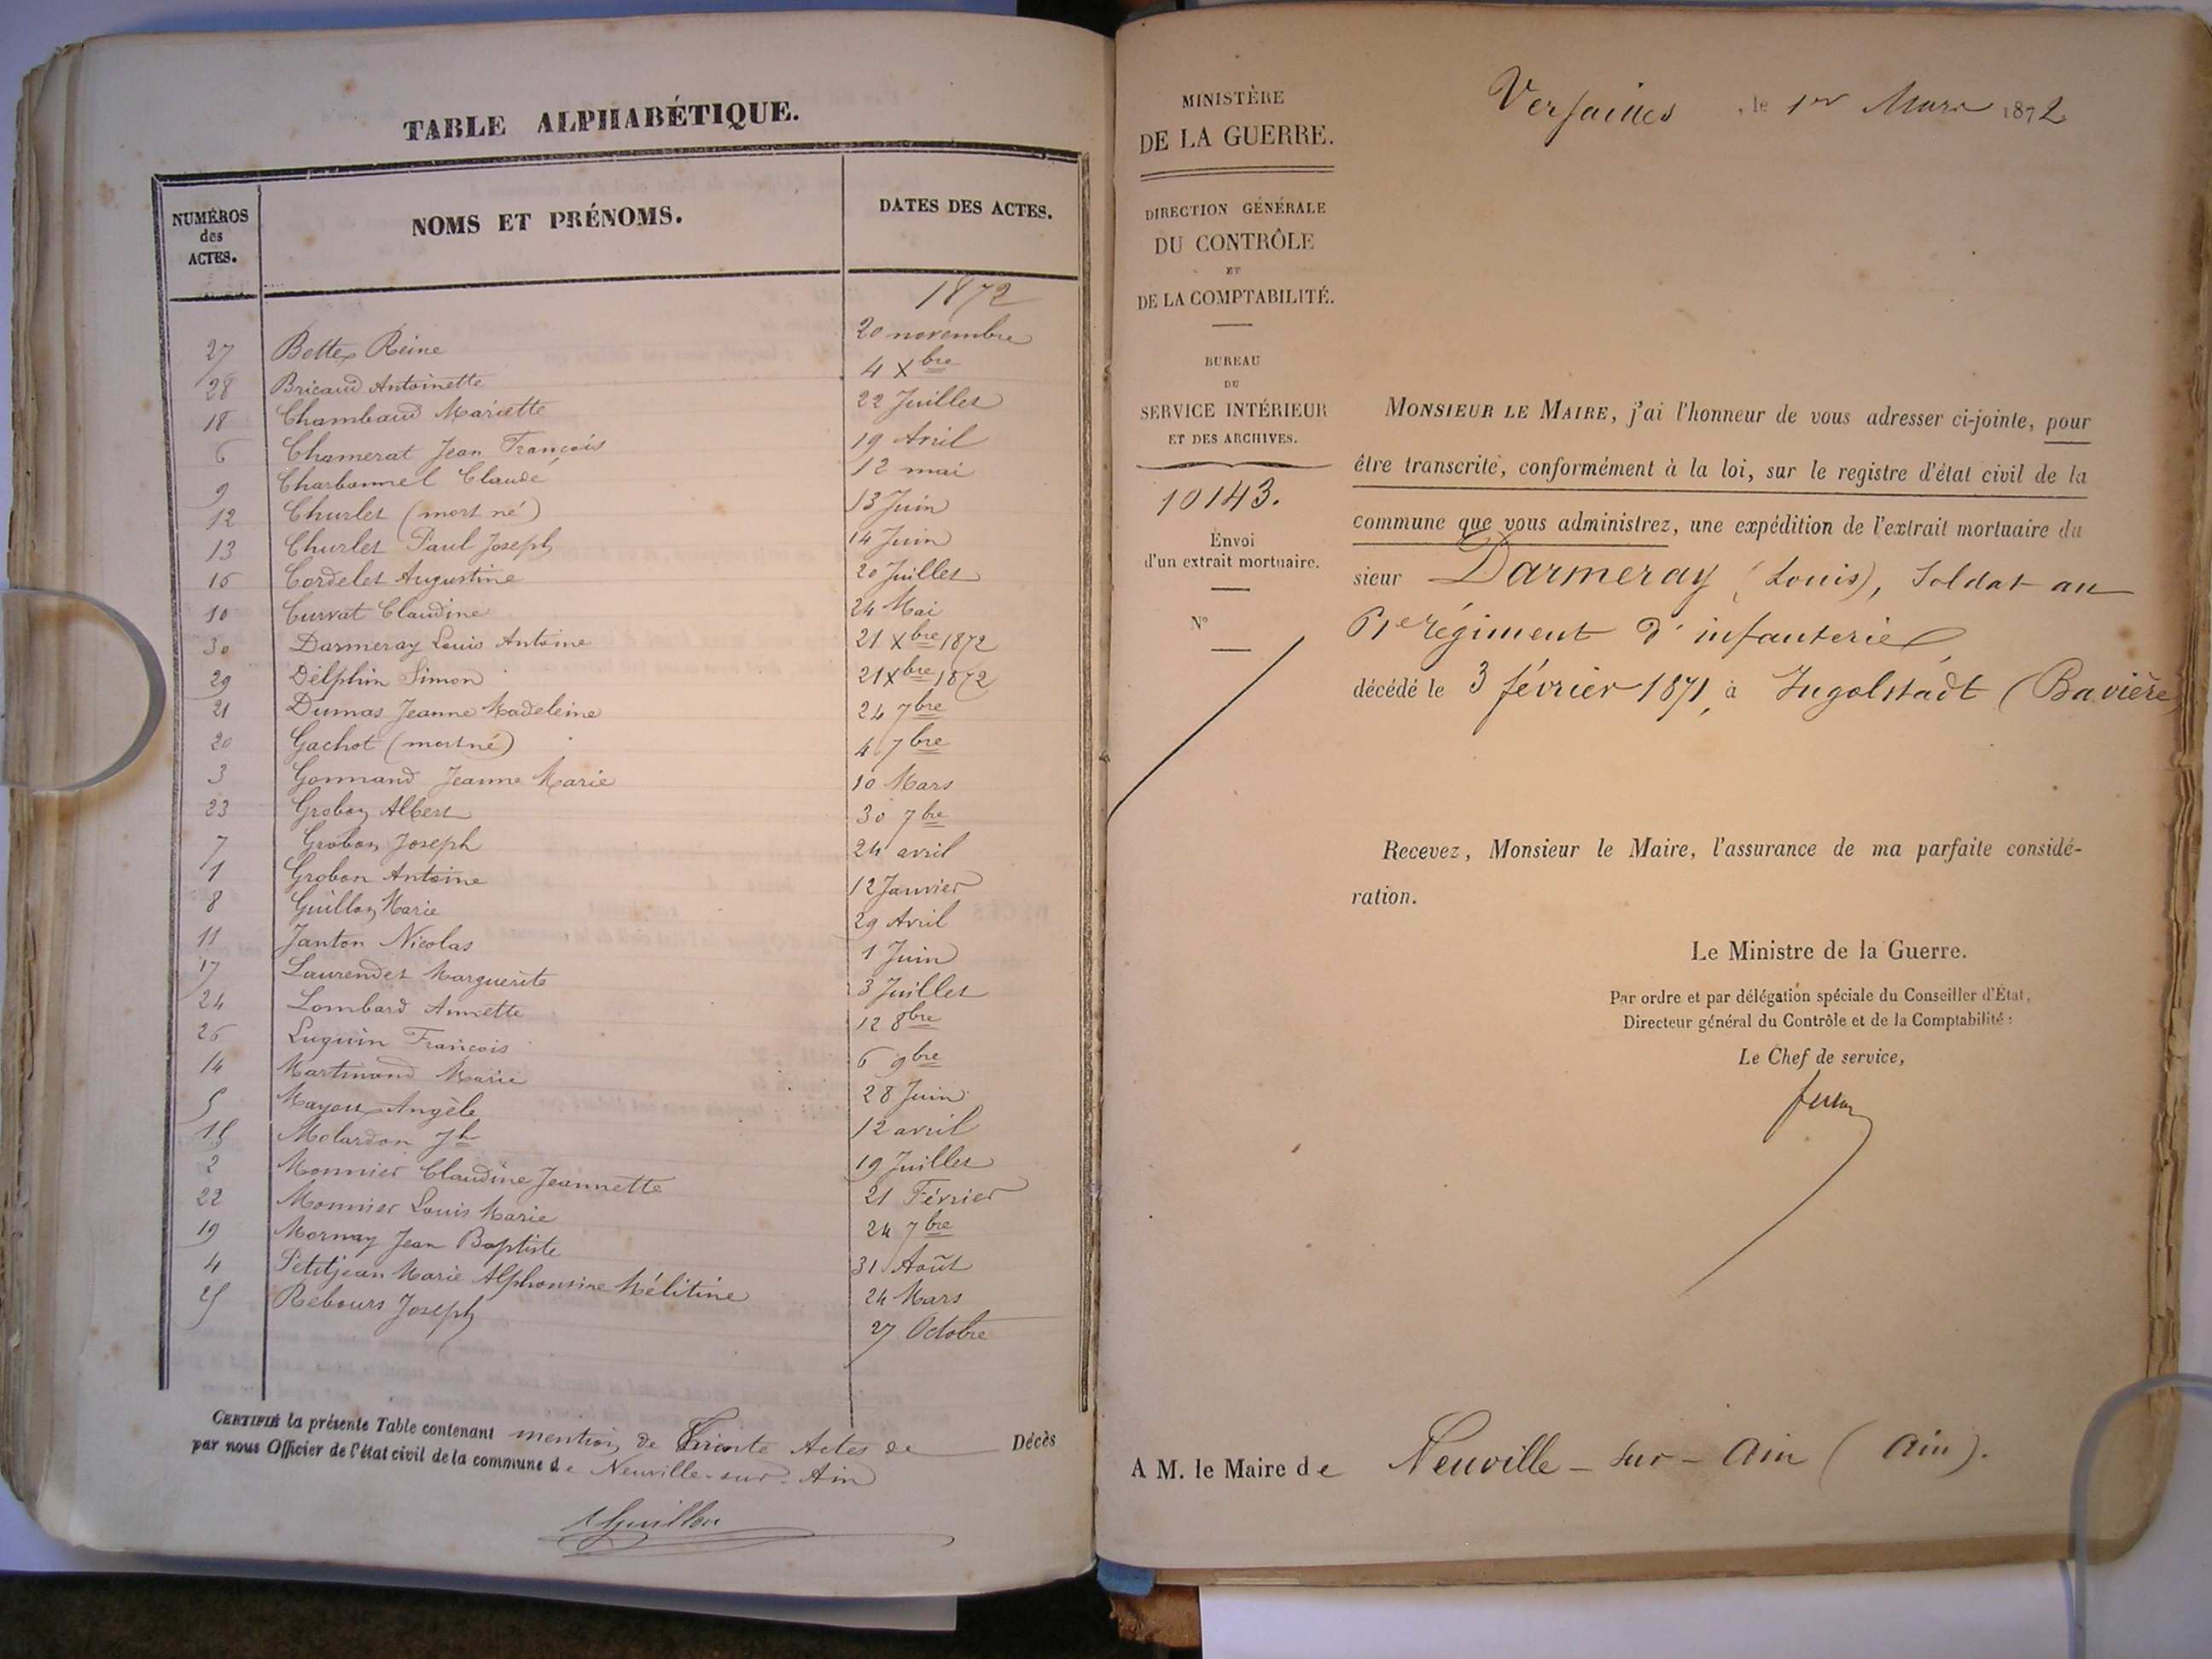 TABLE ALPHABÉTIQUE.
NUMÉROS des ACTES.
NOMS ET PRÉNOMS.
DATES DES ACTES.
1872
27 Bottex Reine 20 novembre
28 Bricaud Antoinette 4 Xbre
18 Chambaud Mariette 22 Juillet
6 Chamerat Jean François 19 Avril
9 Charbonnel Claude 12 mai
12 Churlet (mort né) 13 Juin
13 Churlet Paul Joseph 14 Juin
16 Cordelet Augustine 20 Juillet
10 Curvat Claudine 24 Mai
30 Darmeray Louis Antoine 21 Xbre 1872
29 Delphin Simon 21 Xbre 1872
21 Dumas Jeanne Madeleine 24 7bre
20 Gachot (mort né) 4 7bre
3 Gonnand Jeanne Marie 10 Mars
23 Grobon Albert 30 7bre
7 Grobon Joseph 24 avril
1 Grobon Antoine 12 Janvier
8 Guillon Marie 29 Avril
11 Janton Nicolas 1 Juin
17 Laurendet Marguerite 3 Juillet
24 Lombard Annette 12 8bre
26 Luguin François 6 9bre
14 Martinand Marie 28 Juin
5 Mayoux Angèle 12 avril
15 Molardon Jh 19 Juillet
2 Monnier Claudine Jeannette 21 Février
22 Monnier Louis Marie 24 7bre
19 Mornay Jean Baptiste 31 Août
4 Petitjean Marie Alphonsine Mélitine 24 Mars
25 Rebours Joseph 27 Octobre
CERTIFIÉ la présente Table contenant mention de Trente Actes de Décès
par nous Officier de l'état civil de la commune de Neuville-sur-Ain
Guillon
MINISTÈRE
DE LA GUERRE.
DIRECTION GÉNÉRALE
DU CONTRÔLE
ET
DE LA COMPTABILITÉ.
BUREAU
DU
SERVICE INTÉRIEUR
ET DES ARCHIVES.
10143.
Envoi
d'un extrait mortuaire.
N°
Versailles, le 1er Mars 1872
MONSIEUR LE MAIRE, j'ai l'honneur de vous adresser ci-jointe, pour
être transcrite, conformément à la loi, sur le registre d'état civil de la
commune que vous administrez, une expédition de l'extrait mortuaire du
sieur Darmeray (Louis), Soldat au
61e régiment d'infanterie,
décédé le 3 février 1871, à Ingolstadt (Bavière)
Recevez, Monsieur le Maire, l'assurance de ma parfaite considé-
ration.
Le Ministre de la Guerre.
Par ordre et par délégation spéciale du Conseiller d'État,
Directeur général du Contrôle et de la Comptabilité :
Le Chef de service,
A M. le Maire de Neuville-sur-Ain (Ain).